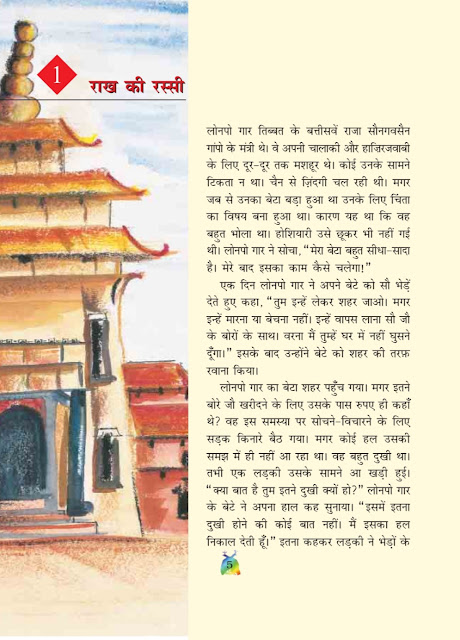 1
राख की रस्सी
लोनपो गार तिब्बत के बत्तीसवें राजा सौनगवसैन
गांपो के मंत्री थे। वे अपनी चालाकी और हाज़िरजवाबी
के लिए दूर-दूर तक मशहूर थे। कोई उनके सामने
टिकता न था। चैन से ज़िंदगी चल रही थी। मगर
जब से उनका बेटा बड़ा हुआ था उनके लिए चिंता
का विषय बना हुआ था। कारण यह था कि वह
बहुत भोला था। होशियारी उसे छूकर भी नहीं गई
थी। लोनपो गार ने सोचा, “मेरा बेटा बहुत सीधा-सादा
है। मेरे बाद इसका काम कैसे चलेगा!”
एक दिन लोनपो गार ने अपने बेटे को सौ भेड़ें
देते हुए कहा, “तुम इन्हें लेकर शहर जाओ। मगर
इन्हें मारना या बेचना नहीं। इन्हें वापस लाना सौ जौ
के बोरों के साथ। वरना मैं तुम्हें घर में नहीं घुसने
दूँगा।” इसके बाद उन्होंने बेटे को शहर की तरफ़
रवाना किया।
लोनपो गार का बेटा शहर पहुँच गया। मगर इतने
बोरे जौ खरीदने के लिए उसके पास रुपए ही कहाँ
थे? वह इस समस्या पर सोचने-विचारने के लिए
सड़क किनारे बैठ गया। मगर कोई हल उसकी
समझ में ही नहीं आ रहा था। वह बहुत दुखी था।
तभी एक लड़की उसके सामने आ खड़ी हुई।
“क्या बात है तुम इतने दुखी क्यों हो?” लोनपो गार
के बेटे ने अपना हाल कह सुनाया। “इसमें इतना
दुखी होने की कोई बात नहीं। मैं इसका हल
निकाल देती हूँ।” इतना कहकर लड़की ने भेड़ों के
5